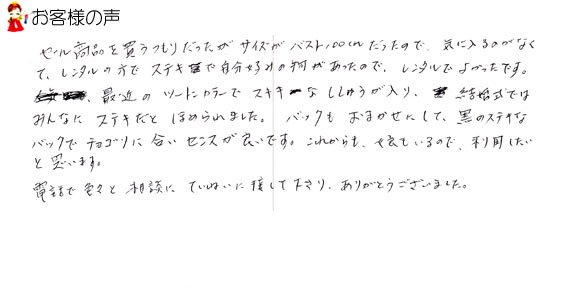 お客様の声
セール商品を買うつもりだったがサイズがバスト100cmだったので、気に入るのがなく
て、レンタルの方でステキで自分好みの柄があったので、レンタルでよかったです。
最近のツートンカラーでステキなししゅうが入り、結婚式では
みんなにステキだとほめられました。バックもおまかせにして、黒のステキな
バックでチョゴリに合いセンスが良いです。これからも、もいるので、利用したい
と思います。
電話で色々と相談に、ていねいに接して下さり、ありがとうございました。